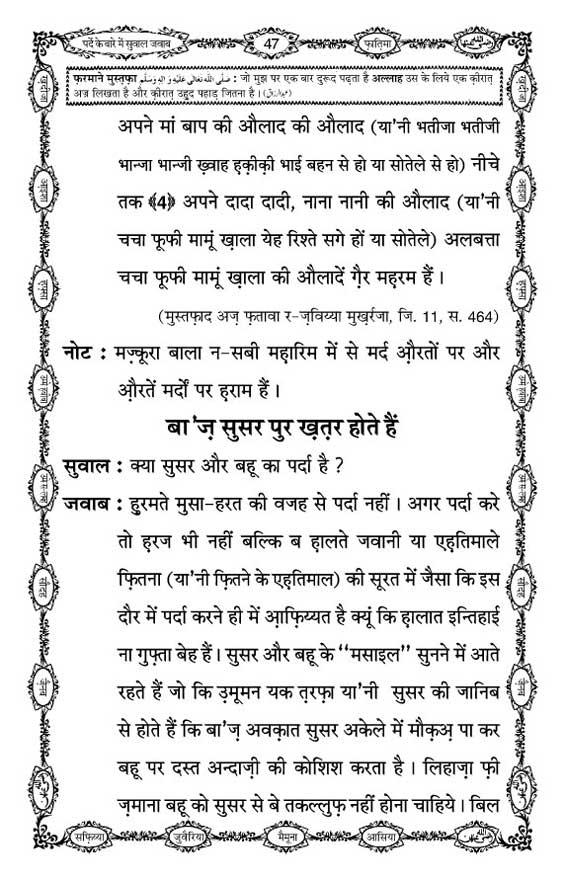 पर्दे के बारे में सुवाल जवाब
47
फ़ातिमा
फ़रमाने मुस्तफ़ा صلى الله تعالى عليه واله وسلم : जो मुझ पर एक बार दुरूद पढ़ता है अल्लाह उस के लिये एक क़ीरात़
अज्र लिखता है और क़ीरात़ उहुद पहाड़ जितना है।
अपने मां बाप की औलाद की औलाद (या'नी भतीजा भतीजी
भान्जा भान्जी ख़्वाह ह़क़ीक़ी भाई बहन से हो या सोतेले से हो) नीचे
तक ﴾4﴿ अपने दादा दादी, नाना नानी की औलाद (या'नी
चचा फूफी मामूं ख़ाला येह रिश्ते सगे हों या सोतेले) अलबत्ता
चचा फूफी मामूं ख़ाला की औलादें ग़ैर महरम हैं।
(मुस्तफ़ाद अज़ फ़तावा र-ज़विय्या मुख़र्रजा, जि. 11, स. 464)
नोट : मज़्कूरा बाला न-सबी महारिम में से मर्द औ़रतों पर और
औ़रतें मर्दों पर ह़राम हैं।
बा'ज़ सुसर पुर ख़त़र होते हैं
सुवाल : क्या सुसर और बहू का पर्दा है ?
जवाब : हु़रमते मुसा-हरत की वजह से पर्दा नहीं। अगर पर्दा करे
तो हरज भी नहीं बल्कि ब हालते जवानी या एह़तिमाले
फ़ितना (या'नी फ़ितने के एह़तिमाल) की सूरत में जैसा कि इस
दौर में पर्दा करने ही में आ़फ़िय्यत है क्यूं कि हालात इन्तिहाई
ना गुफ़्ता बेह हैं। सुसर और बहू के “मसाइल” सुनने में आते
रहते हैं जो कि उ़मूमन यक त़रफ़ा या'नी सुसर की जानिब
से होते हैं कि बा'ज़ अवक़ात सुसर अकेले में मौक़अ़ पा कर
बहू पर दस्त अन्दाज़ी की कोशिश करता है। लिहाज़ा फ़ी
ज़माना बहू को सुसर से बे तकल्लुफ़ नहीं होना चाहिये। बिल
सफ़िय्या
जुवैरिया
मैमूना
आसिया